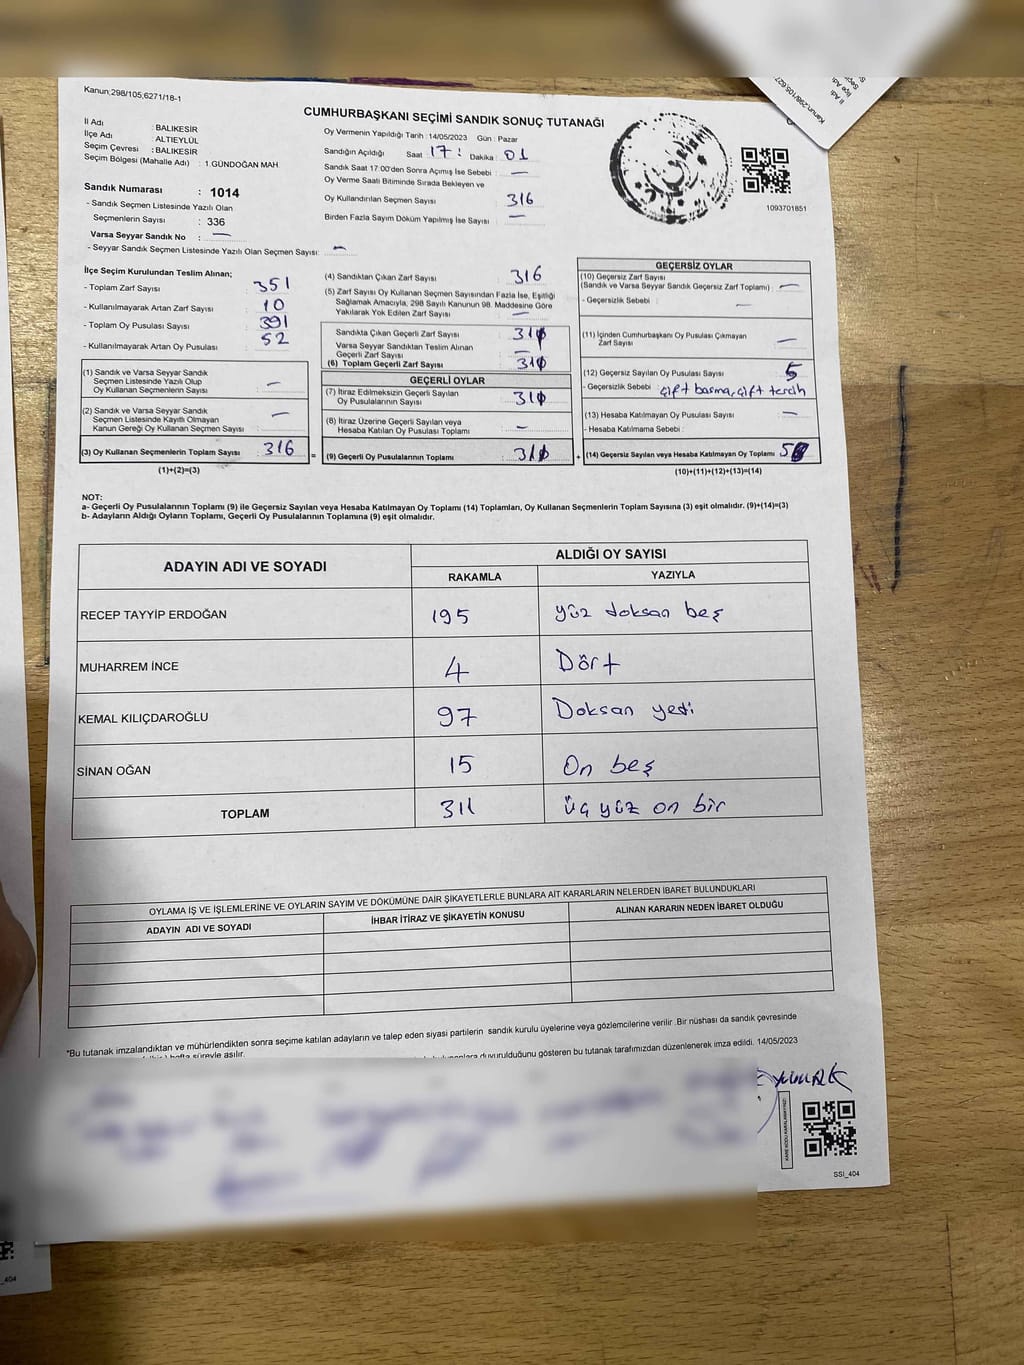 Kanun:298/105,6271/18-1
CUMHURBAŞKANI SEÇİMİ SANDIK SONUÇ TUTANAĞI
İl Adı : BALIKESİR
İlçe Adı : ALTIEYLÜL
Seçim Çevresi : BALIKESİR
Seçim Bölgesi (Mahalle Adı) : 1.GÜNDOĞAN MAH
Sandık Numarası : 1014
- Sandık Seçmen Listesinde Yazılı Olan
Seçmenlerin Sayısı : 336
Varsa Seyyar Sandık No : —
- Seyyar Sandık Seçmen Listesinde Yazılı Olan Seçmen Sayısı: —
Oy Vermenin Yapıldığı Tarih : 14/05/2023 Gün : Pazar
Sandığın Açıldığı Saat 17 : Dakika : 01
Sandık Saat 17:00'den Sonra Açımış İse Sebebi : —
Oy Verme Saati Bitiminde Sırada Bekleyen ve
Oy Kullandırılan Seçmen Sayısı : 316
Birden Fazla Sayım Döküm Yapılmış İse Sayısı : —
1093701851
İlçe Seçim Kurulundan Teslim Alınan;
- Toplam Zarf Sayısı : 351
- Kullanılmayarak Artan Zarf Sayısı : 10
- Toplam Oy Pusulası Sayısı : 391
- Kullanılmayarak Artan Oy Pusulası : 52
(1) Sandık ve Varsa Seyyar Sandık
Seçmen Listesinde Yazılı Olup
Oy Kullanan Seçmenlerin Sayısı : —
(2) Sandık ve Varsa Seyyar Sandık
Seçmen Listesinde Kayıtlı Olmayan
Kanun Gereği Oy Kullanan Seçmen Sayısı : —
(3) Oy Kullanan Seçmenlerin Toplam Sayısı : 316
(1)+(2)=(3)
(4) Sandıktan Çıkan Zarf Sayısı : 316
(5) Zarf Sayısı Oy Kullanan Seçmen Sayısından Fazla İse, Eşitliği
Sağlamak Amacıyla, 298 Sayılı Kanunun 98. Maddesine Göre
Yakılarak Yok Edilen Zarf Sayısı : —
Sandıkta Çıkan Geçerli Zarf Sayısı :
Varsa Seyyar Sandıktan Teslim Alınan
Geçerli Zarf Sayısı : —
(6) Toplam Geçerli Zarf Sayısı :
GEÇERLİ OYLAR
(7) İtiraz Edilmeksizin Geçerli Sayılan
Oy Pusulalarının Sayısı :
(8) İtiraz Üzerine Geçerli Sayılan veya
Hesaba Katılan Oy Pusulası Toplamı : —
= (9) Geçerli Oy Pusulalarının Toplamı :
GEÇERSİZ OYLAR
(10) Geçersiz Zarf Sayısı
(Sandık ve Varsa Seyyar Sandık Geçersiz Zarf Toplamı) : —
- Geçersizlik Sebebi : —
(11) İçinden Cumhurbaşkanı Oy Pusulası Çıkmayan
Zarf Sayısı : —
(12) Geçersiz Sayılan Oy Pusulası Sayısı : 5
- Geçersizlik Sebebi : çift basma, çift tercih
(13) Hesaba Katılmayan Oy Pusulası Sayısı : —
- Hesaba Katılmama Sebebi :
+ (14) Geçersiz Sayılan veya Hesaba Katılmayan Oy Toplamı : 5
(10)+(11)+(12)+(13)=(14)
NOT:
a- Geçerli Oy Pusulalarının Toplamı (9) ile Geçersiz Sayılan veya Hesaba Katılmayan Oy Toplamı (14) Toplamları, Oy Kullanan Seçmenlerin Toplam Sayısına (3) eşit olmalıdır. (9)+(14)=(3)
b- Adayların Aldığı Oyların Toplamı, Geçerli Oy Pusulalarının Toplamına (9) eşit olmalıdır.
ADAYIN ADI VE SOYADI
ALDIĞI OY SAYISI
RAKAMLA YAZIYLA
RECEP TAYYİP ERDOĞAN 195 yüz doksan beş
MUHARREM İNCE 4 Dört
KEMAL KILIÇDAROĞLU 97 Doksan yedi
SİNAN OĞAN 15 On beş
TOPLAM 311 üç yüz on bir
OYLAMA İŞ VE İŞLEMLERİNE VE OYLARIN SAYIM VE DÖKÜMÜNE DAİR ŞİKAYETLERLE BUNLARA AİT KARARLARIN NELERDEN İBARET BULUNDUKLARI
ADAYIN ADI VE SOYADI İHBAR İTİRAZ VE ŞİKAYETİN KONUSU ALINAN KARARIN NEDEN İBARET OLDUĞU
*Bu tutanak imzalandıktan ve mühürlendikten sonra seçime katılan adayların ve talep eden siyasi partilerin sandık kurulu üyelerine veya gözlemcilerine verilir .Bir nüshası da sandık çevresinde
hafta süreyle asılır.
duyurulduğunu gösteren bu tutanak tarafımızdan düzenlenerek imza edildi. 14/05/2023
SSI_404